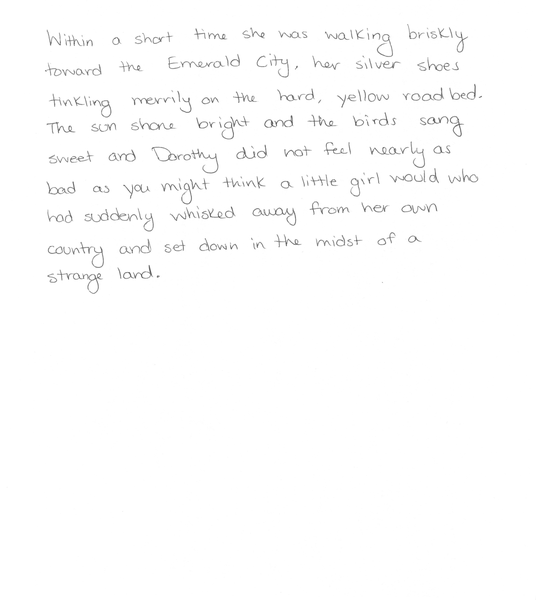 Within a short time she was walking briskly
toward the Emerald City, her silver shoes
tinkling merrily on the hard, yellow roadbed.
The sun shone bright and the birds sang
sweet and Dorothy did not feel nearly as
bad as you might think a little girl would who
had suddenly whisked away from her own
country and set down in the midst of a
strange land.